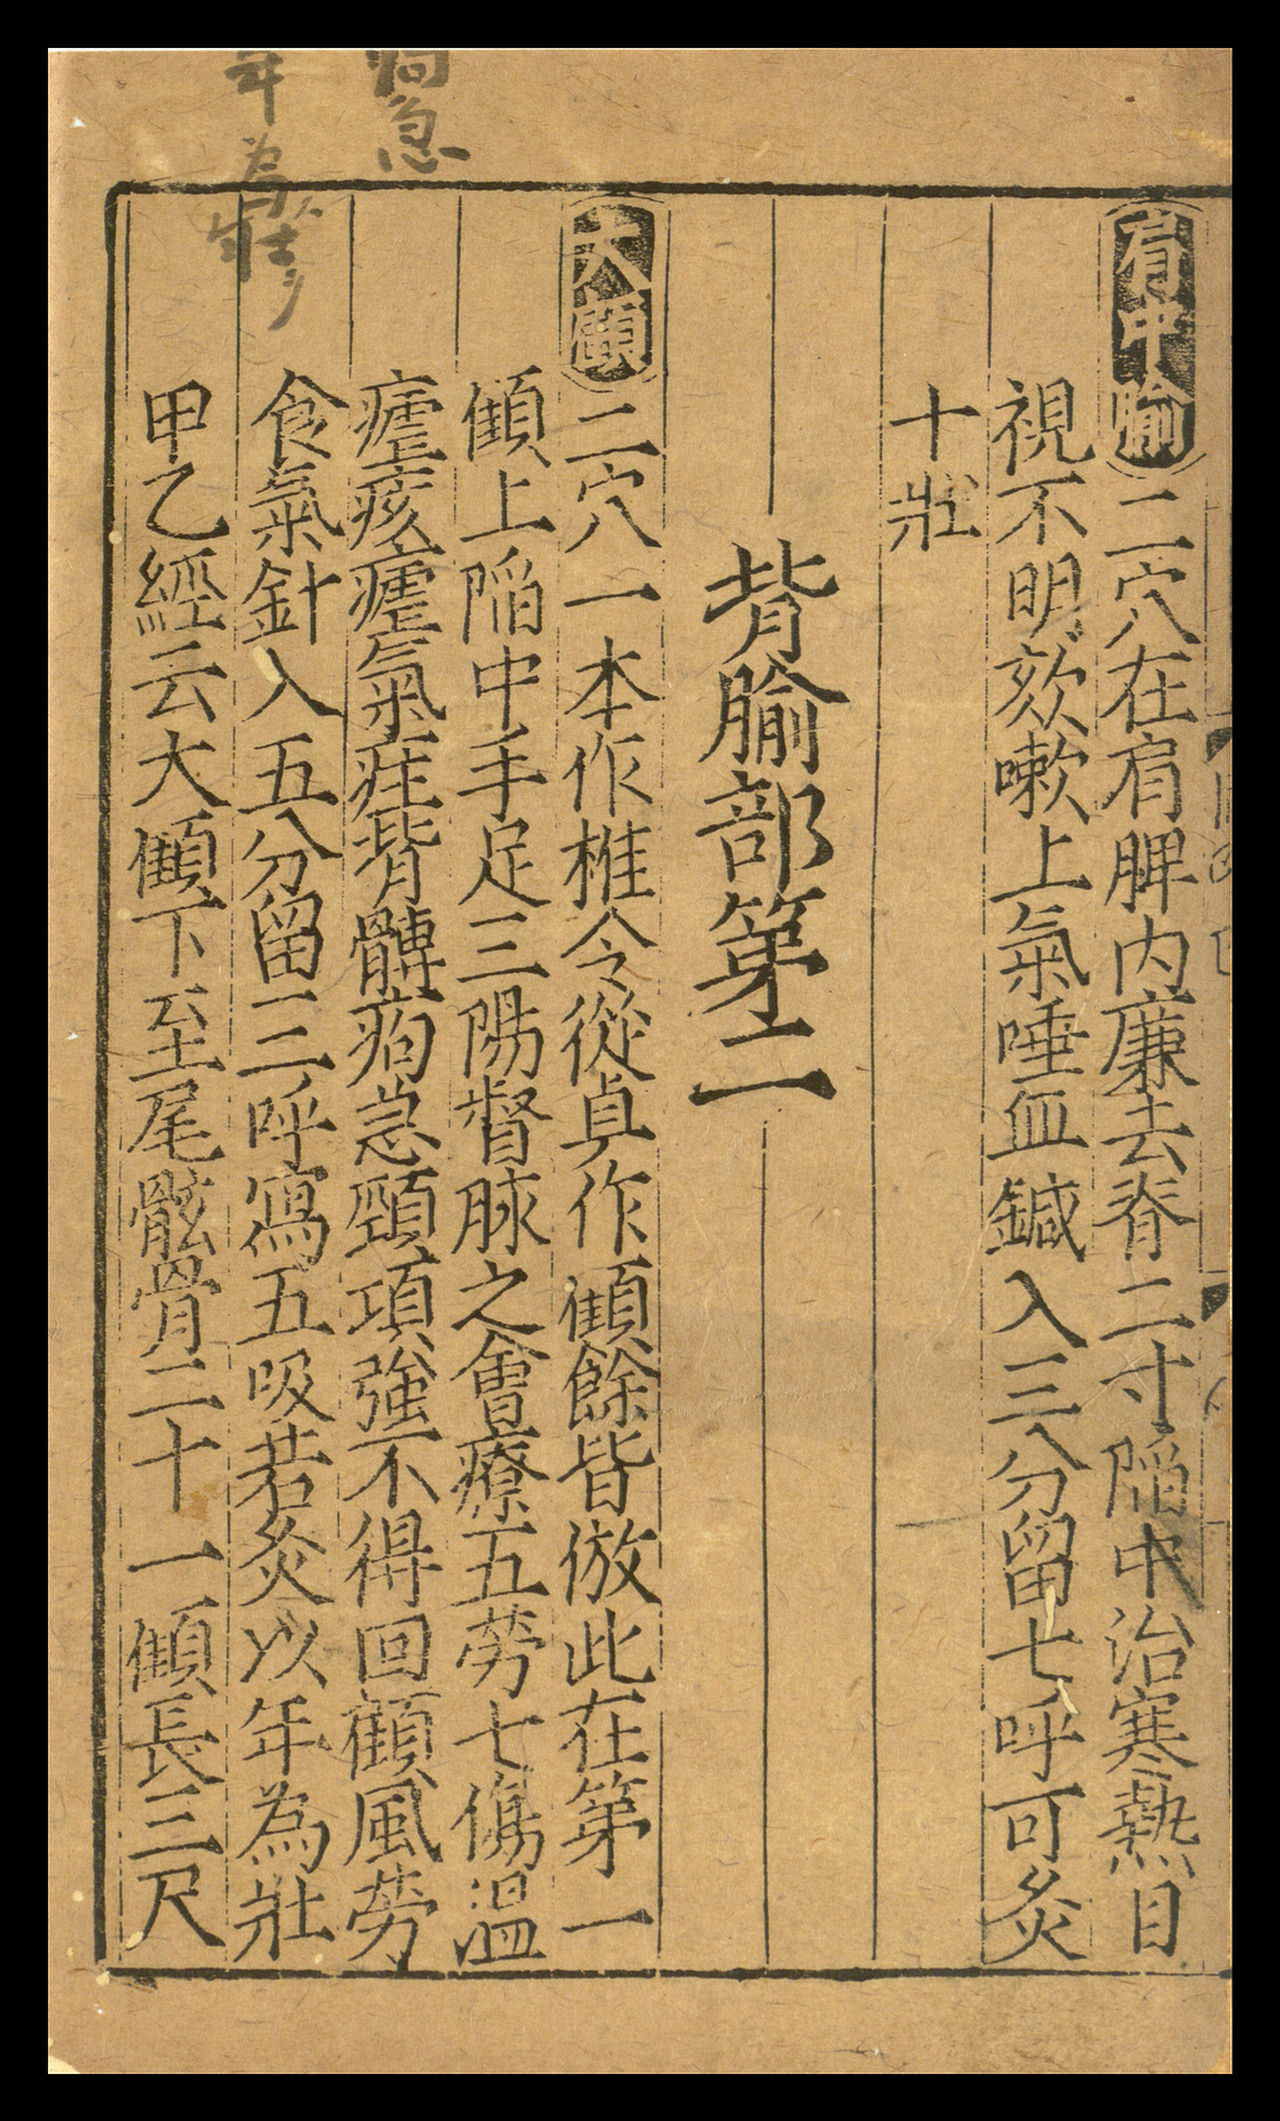 肩中腧二穴在肩脾内廉去脊二寸陷中治寒熱目
視不明欬嗽上氣唾血鍼入三分留七呼可灸
十壯
背腧部第二
大顀二穴一本作椎今從眞作顀餘皆倣此在第一
顀上陷中手足三陽督脉之會療五勞七傷温
瘧痎瘧氣疰背髆痀急頸項強不得回顧風勞
食氣針入五分留三呼寫五吸若灸以年為壯
甲乙經云大顀下至尾骶骨二十一顀長三尺
痀急
年為壯